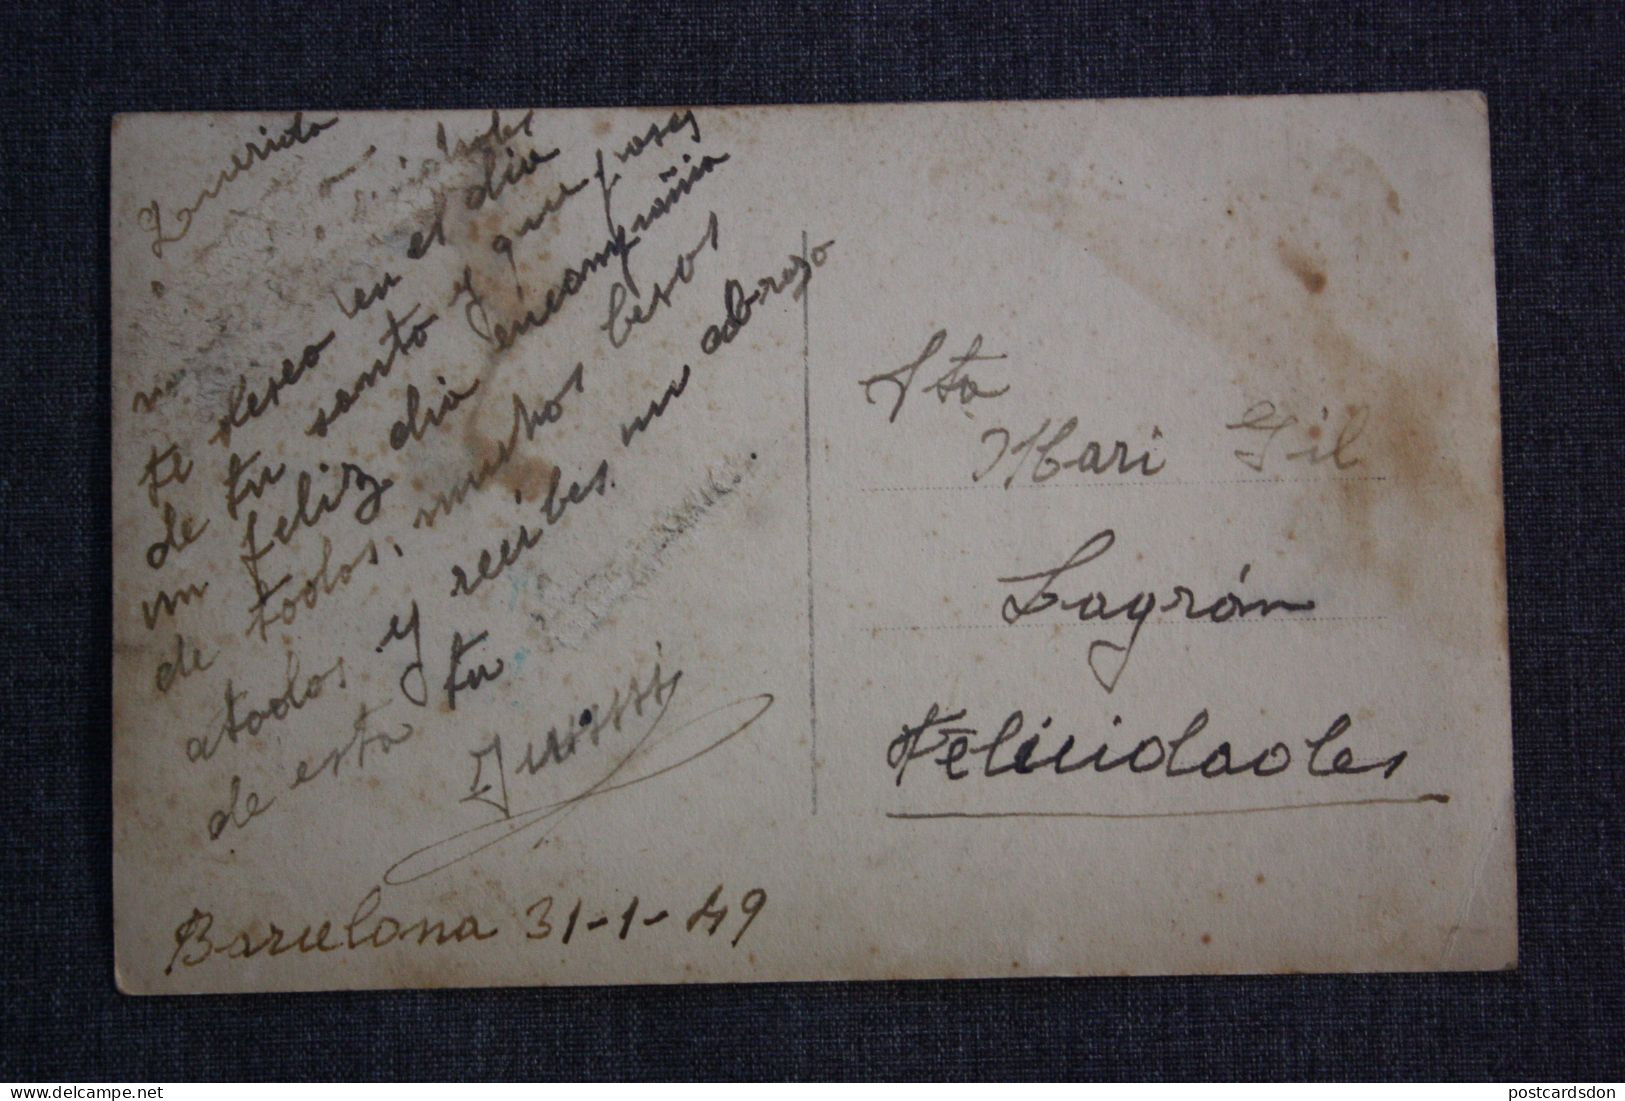 Querida
felicidades
te deseo en el dia
de tu santo y que pases
un feliz dia encompañia
de todos, muchos besos
atodos y recibes un abrazo
de esta tu
Barcelona 31-1-49
Sta
Mari Gil
Lagrán
Felicidades
postcardsdon